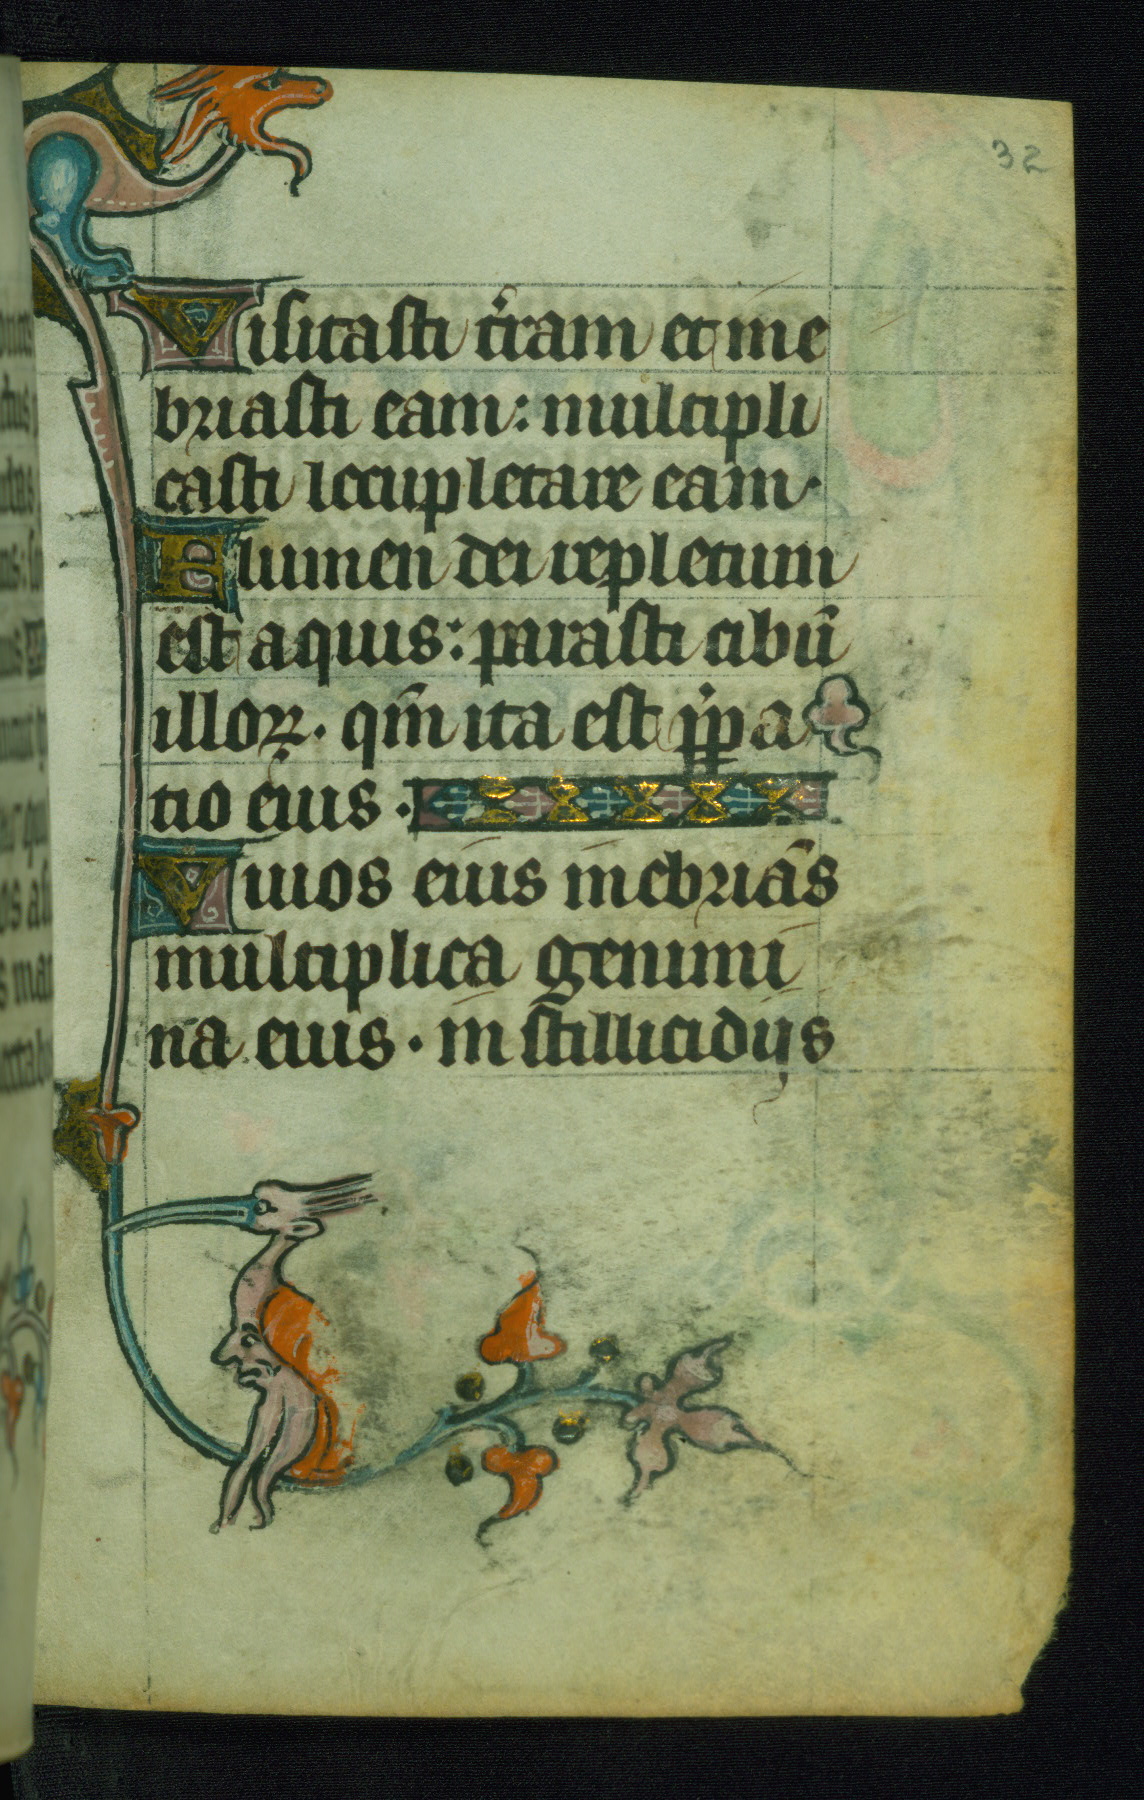 32
Visitasti t̄ram et ine
briasti eam: multipli
casti locupletare eam.
Flumen dei repletum
est aquis: parasti cibū
illoꝝ. qm̄ ita est p̄pa
tio eius.
Riuos eius inebriās
multiplica genimi
na eius. in stillicidijs